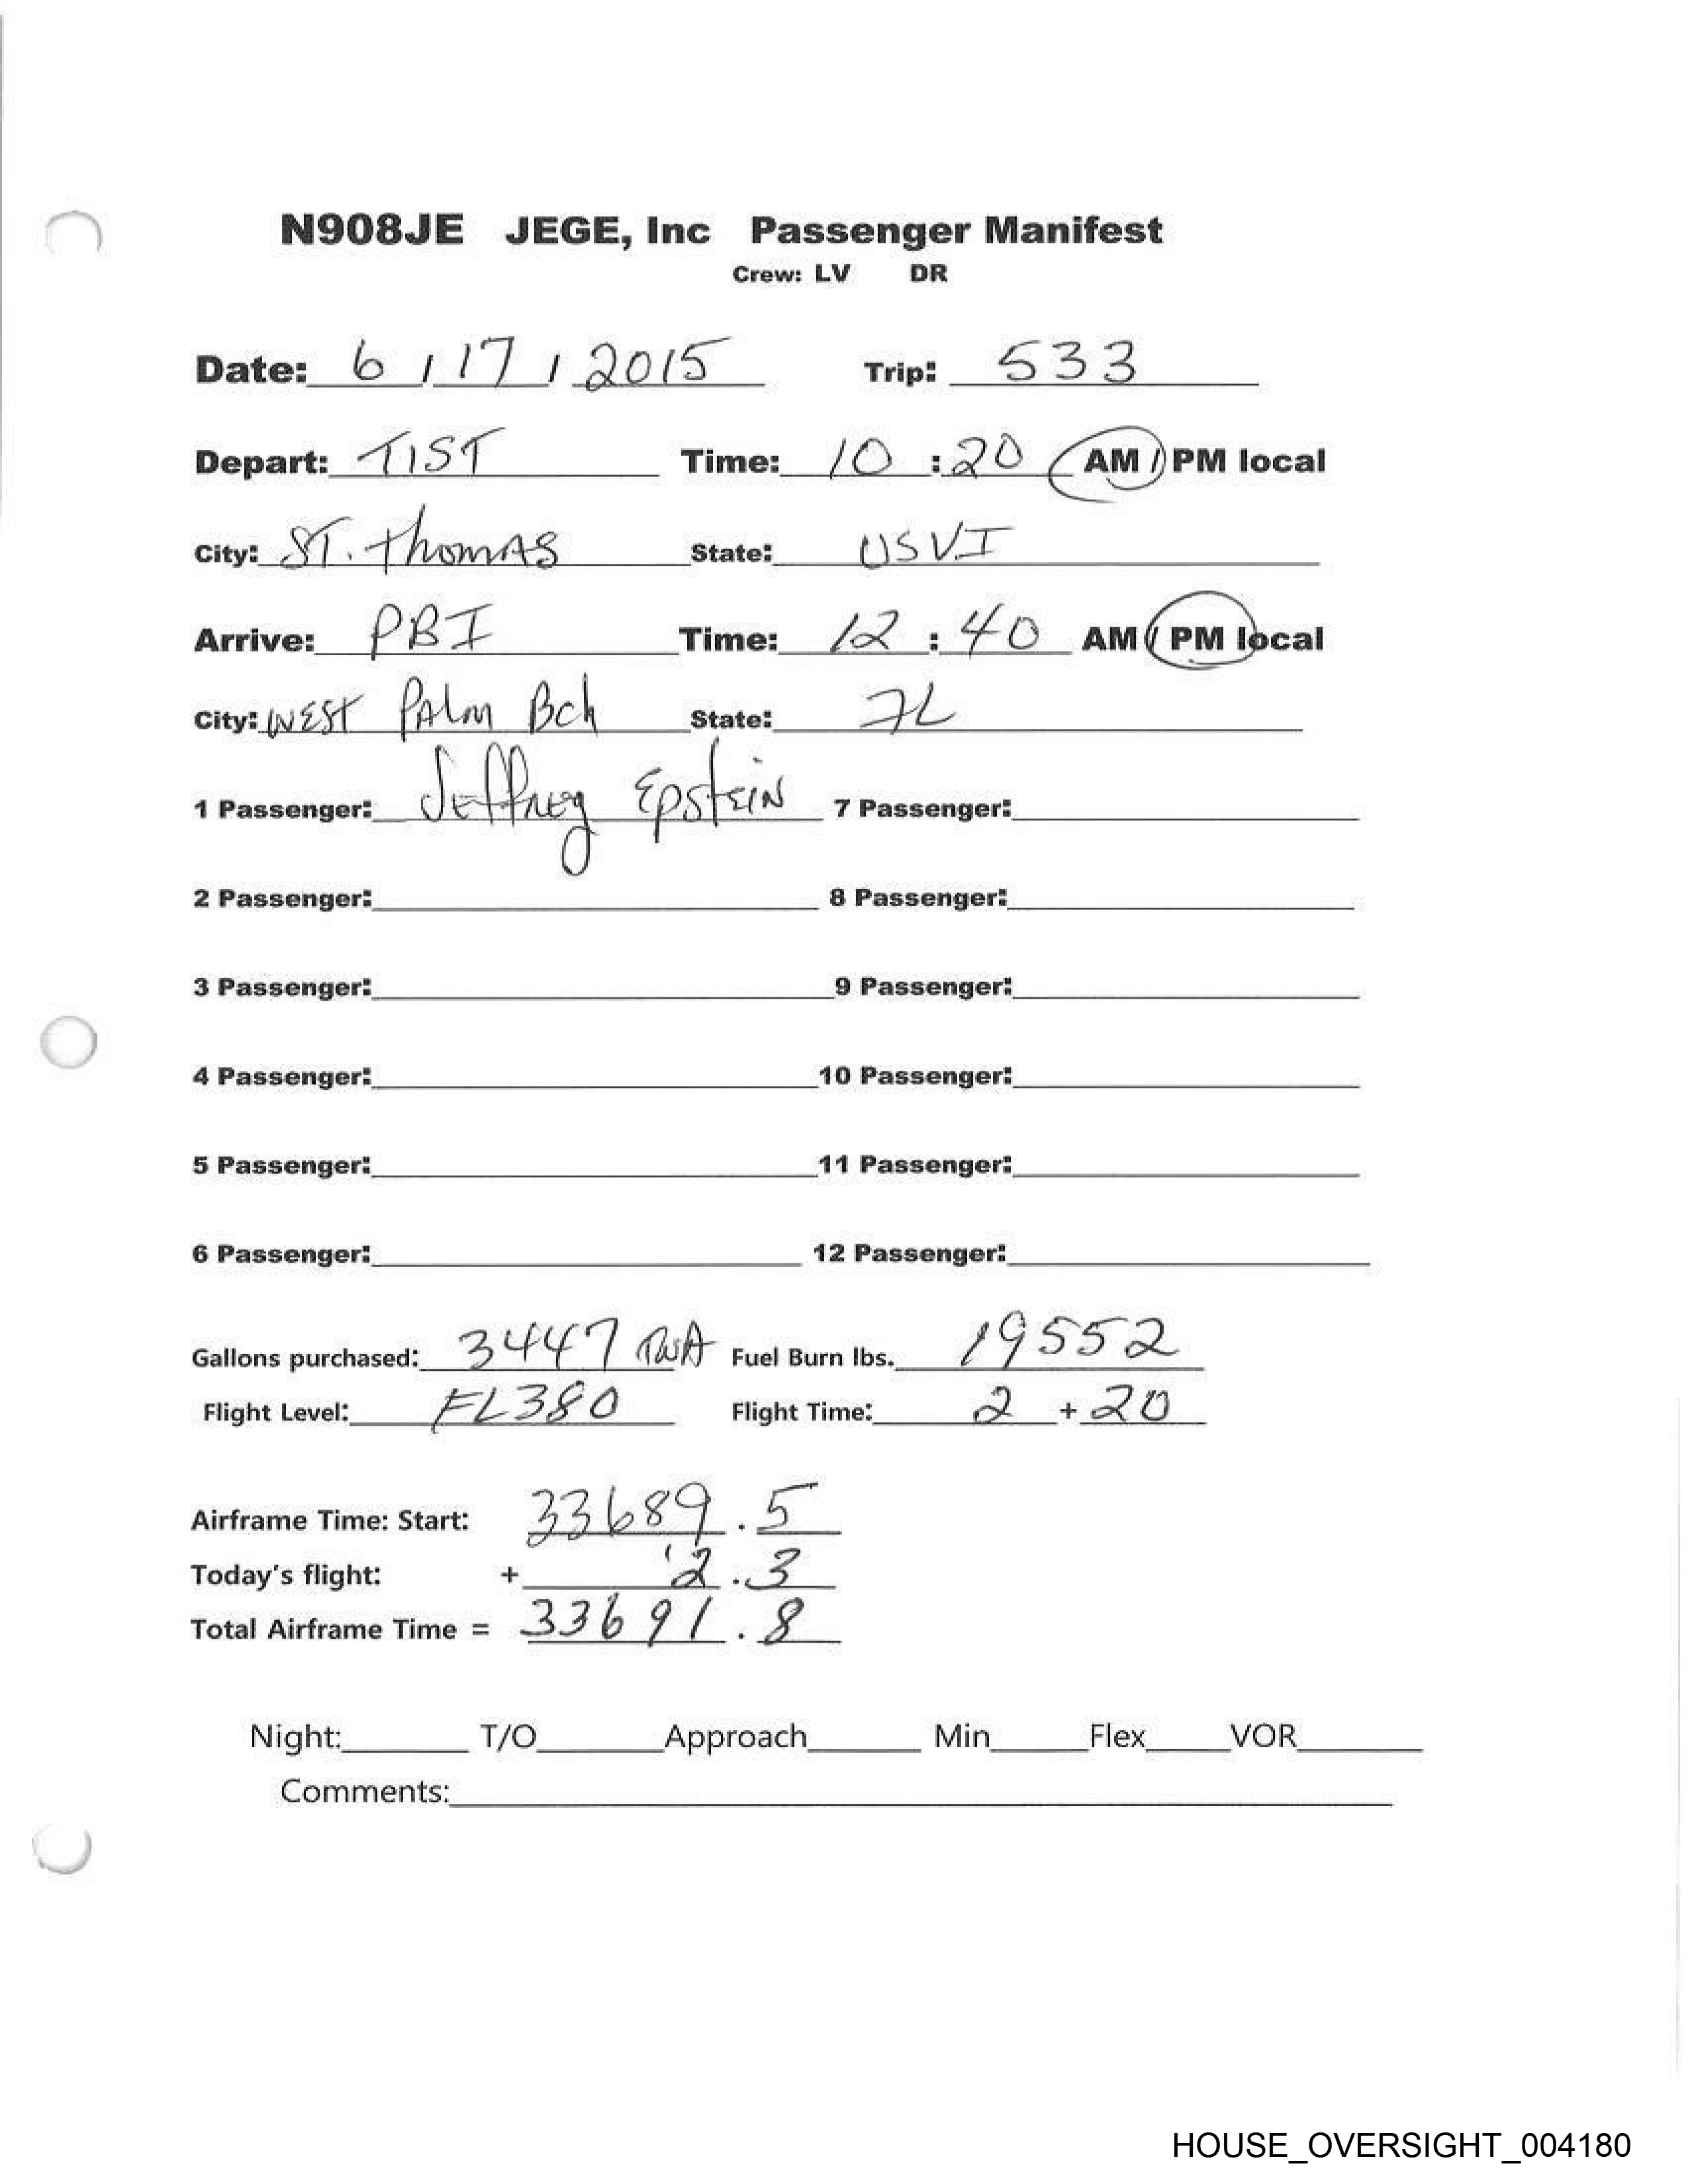 N908JE JEGE, Inc Passenger Manifest
Crew: LV DR
Date: 6 / 17 / 2015 Trip: 533
Depart: TIST Time: 10 : 20 AM / PM local
City: ST. Thomas State: USVI
Arrive: PBI Time: 12 : 40 AM / PM local
City: West Palm Bch State: FL
1 Passenger: Jeffrey Epstein 7 Passenger:
2 Passenger: 8 Passenger:
3 Passenger: 9 Passenger:
4 Passenger: 10 Passenger:
5 Passenger: 11 Passenger:
6 Passenger: 12 Passenger:
Gallons purchased: 3447 Fuel Burn lbs. 19552
Flight Level: FL380 Flight Time: 2 + 20
Airframe Time: Start: 33689.5
Today's flight: + 2.3
Total Airframe Time = 33691.8
Night: T/O Approach Min Flex VOR
Comments:
HOUSE_OVERSIGHT_004180